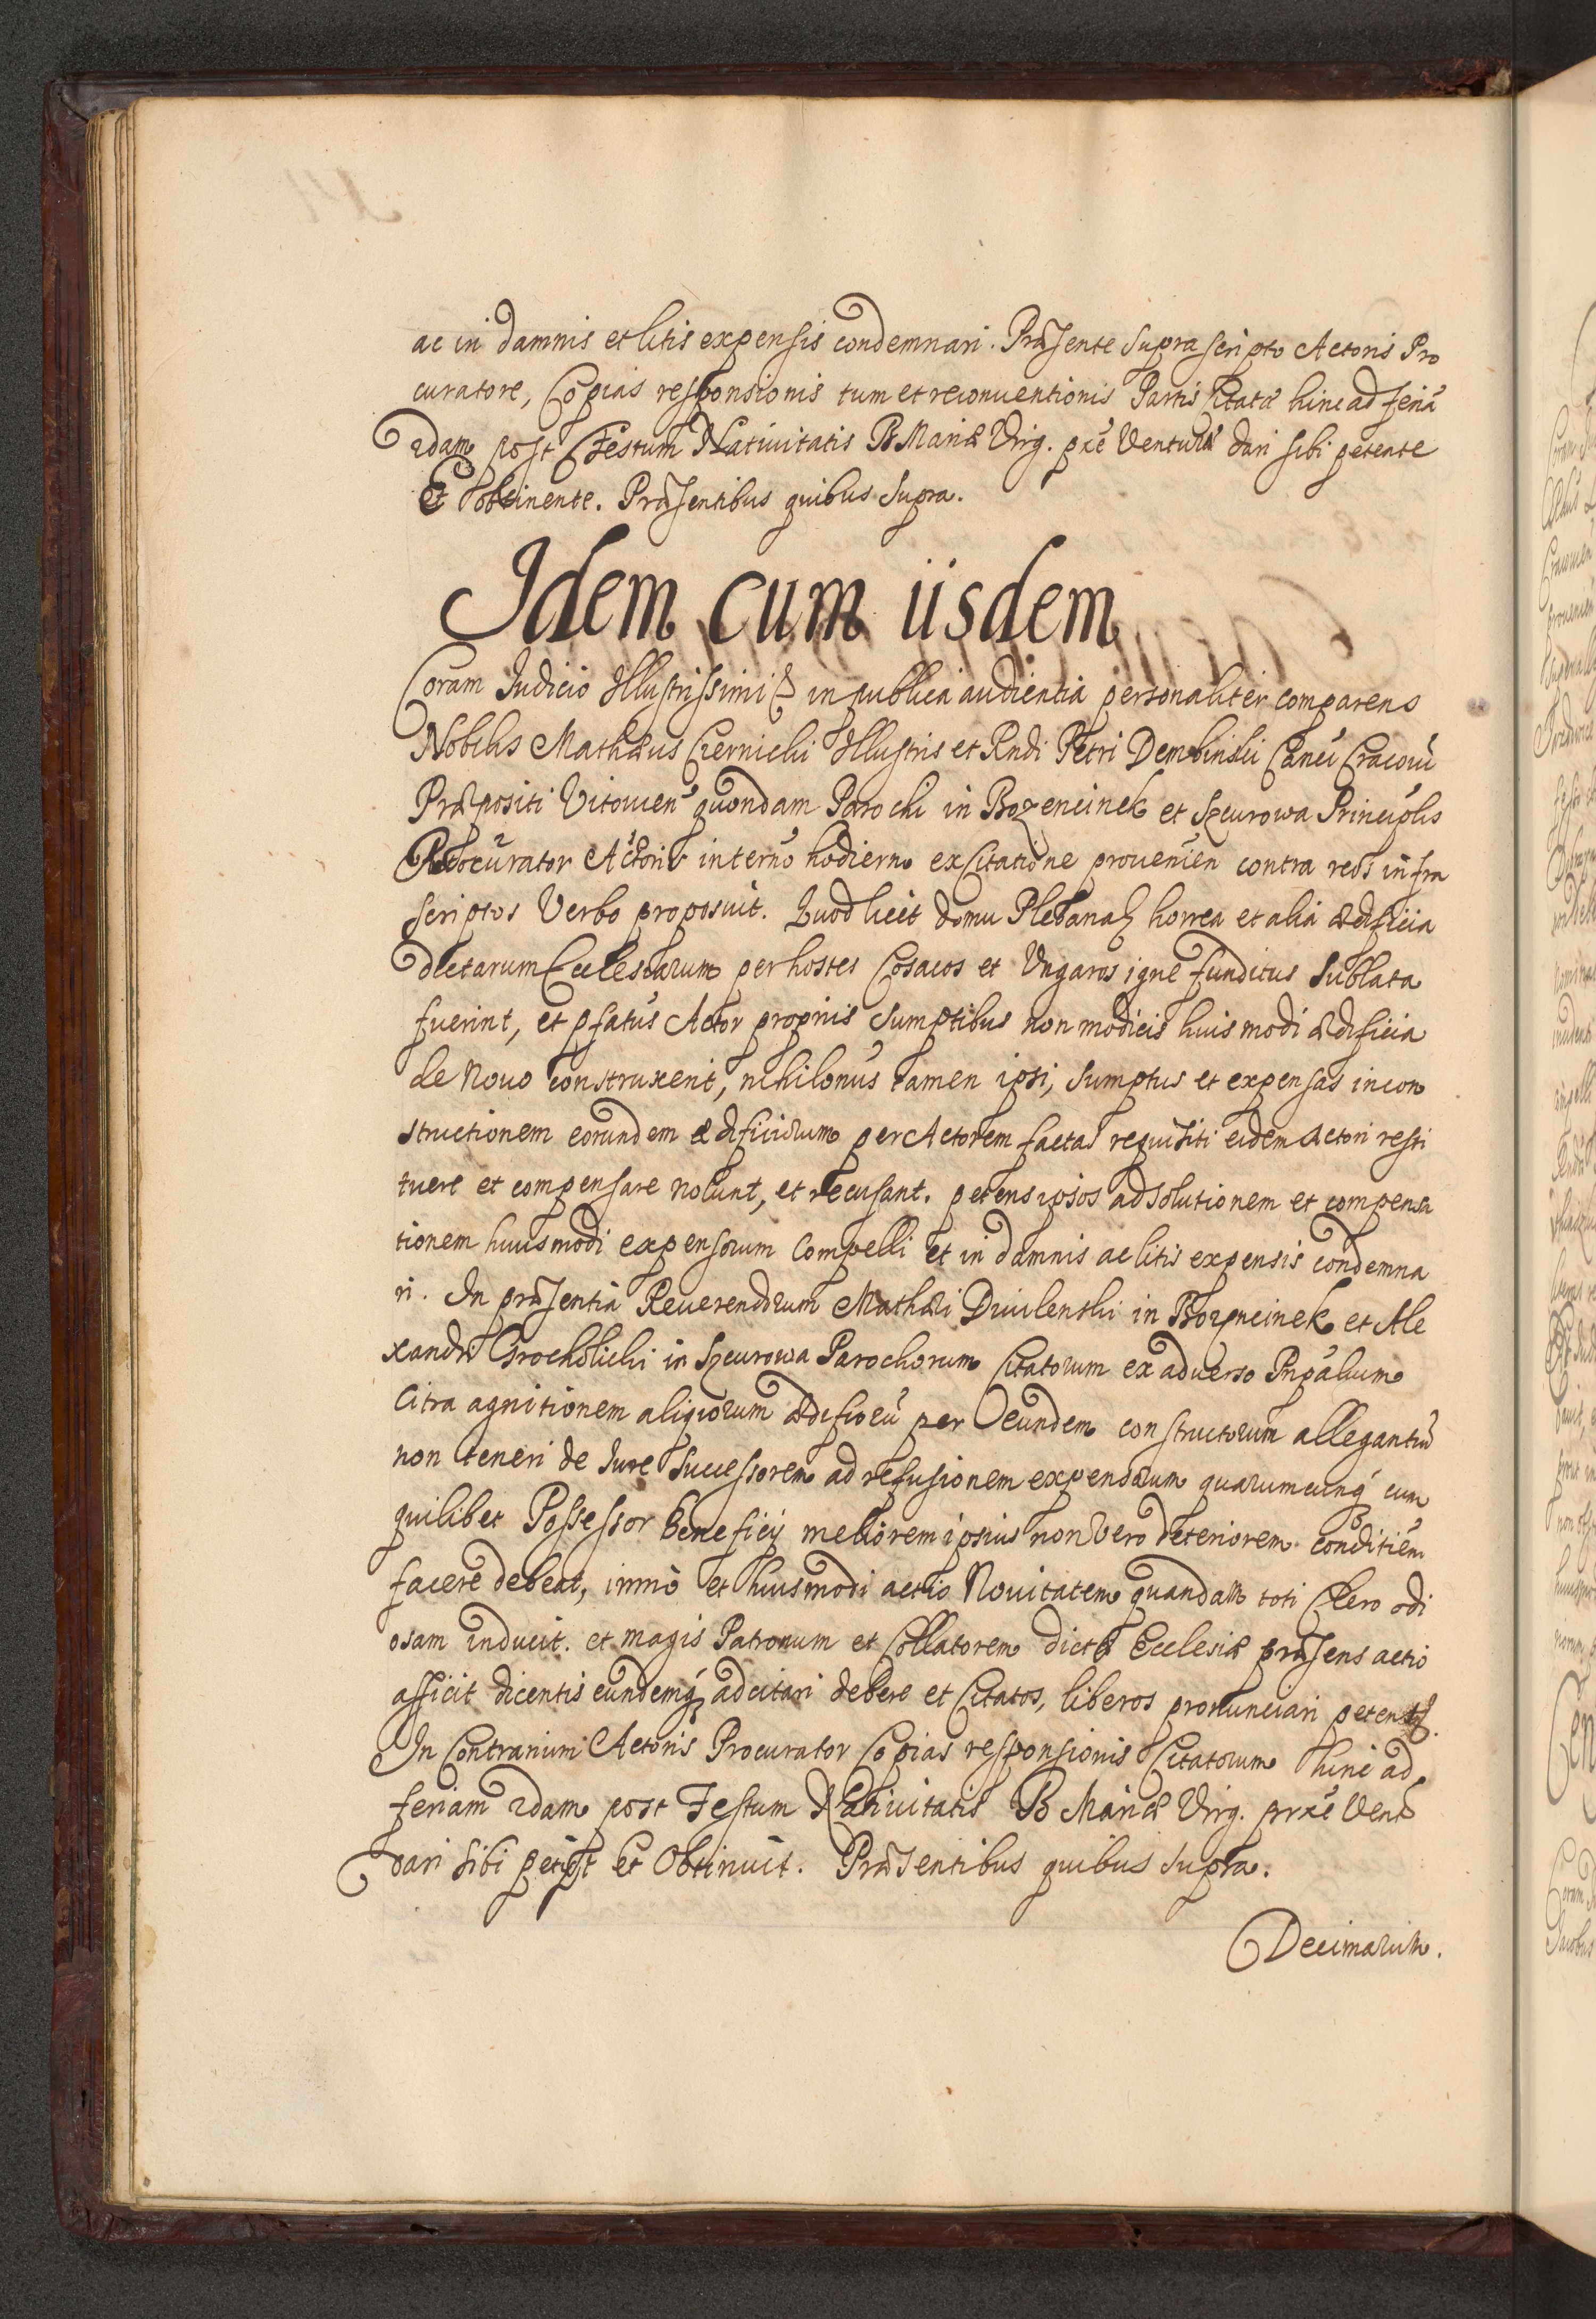 ac in damnis et litis expensis condemnari. Præsente supra scripto Actoris Pro
curatore, Copias responsionis tum et reconventionis Partis Citatæ hinc ad feriã
2dam post Festum Nativitatis B Mariæ Virg. pxẽ Venturæ dari sibi petente
Et obtinente. Præsentibus quibus supra.
Idem cum iisdem
Coram Judicio Illustrissimi & in publica audientia personaliter comparens
Nobilis Mathæus Czernicki Illustris et Rndi Petri Dembinski Canci Cracovi
Præpositi Vitovien quondam Parochi in Bozencinek et Szcurowa Principlis
Procurator Actoris in termo hodierno ex Citatione provenien contra reos infra
scriptos Verbo proposuit. Quod licet domu Plebanal horrea et alia ædificia
dictarum Ecclesiarum per hostes Cosacos et Ungaros igne funditus sublata
fuerint, et pfatus Actor propriis sumptibus non modicis huismodi ædificia
de Novo construxerit, nihilonus tamen ipsi, sumptus et expensas in con
structionem eorundem ædificiorum per Actorem factas requisiti eidem Actori resti
tuere et compensare nolunt, et recusant. petens ipsos ad solutionem et compensa
tionem huiusmodi expensorum Compelli et in damnis ac litis expensis condemna
ri. In præsentia Reverendorum Mathæi Dwilenski in Bozencinek et Ale
xandri Grocholicki in Szcurowa Parochorum Citatorum ex adverso Pnpalium
Citra agnitionem aliquorum ædificiu per eundem constructorum allegantiũ
non teneri de Jure Successorem ad refusionem expensarum quarumcunq cum
quilibet Possessor beneficij meliorem ipsius non vero deteriorem conditiem
facere debeat, immo et huiusmodi actio Novitatem quandam toti Clero odi
osam inducit. et magis Patronum et Collatorem dictæ Ecclesiæ præsens actio
afficit dicentis eundemq adcitari debere et Citatos, liberos pronunciari petentq.
In Contrarium Actoris Procurator Copias responsionis Citatorum hinc ad
feriam 2dam post Festum Nativitatis B Mariæ Virg. prxẽ Vent
dari sibi petiit et Obtinuit. Præsentibus quibus supra.
Decimarum.